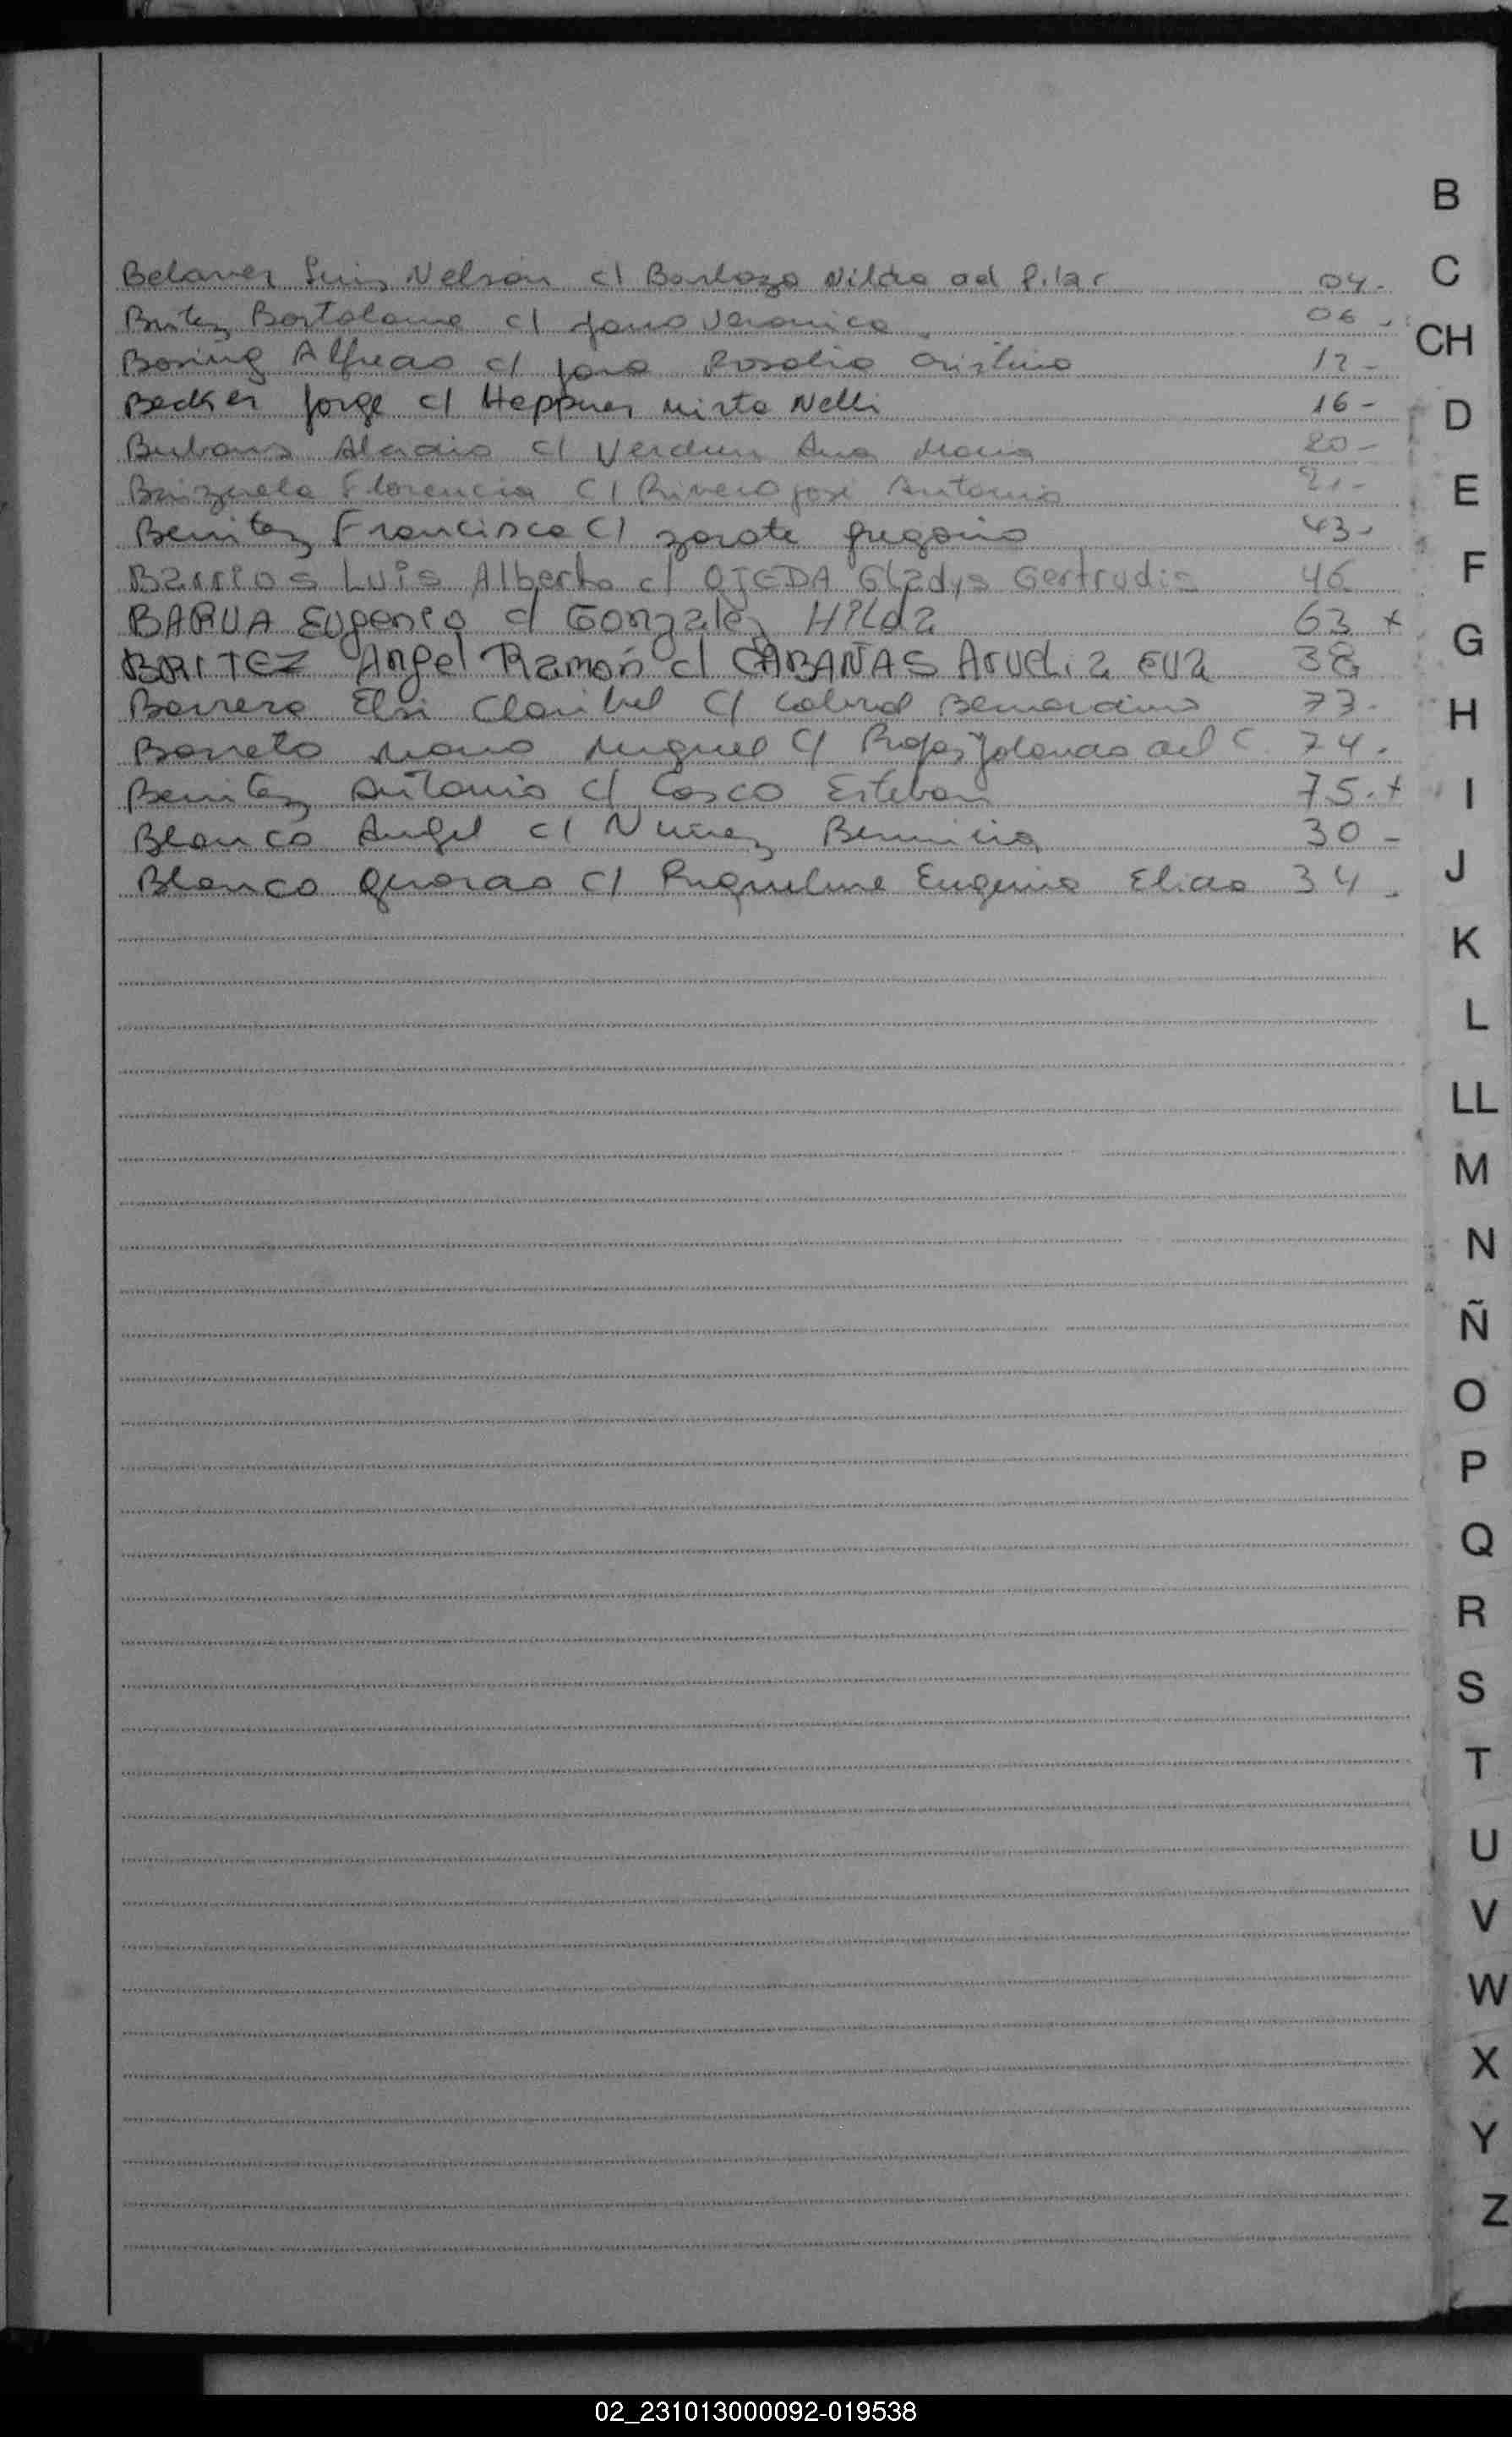 B
Belaner Luis Nelson c/ Barlozo Nilda del Pilar 04.-
C
Britez Bortolome c/ Jara Veronica 06.-
CH
Boning Alfredo c/ Jara Rosalia Cristina 12-
Becker Jorge c/ Heppner Mirta Nelli 16-
D
Aladio c/ Verdun Ana Maria 20-
Brizuela Florencia c/ Rivero José Antonio 21-
E
Benitez Francisca c/ Zarate Gregorio 43-
Barrios Luis Alberto c/ OJEDA Gladys Gertrudis 46
F
BARUA Eugenio c/ Gonzalez Hilda 63 +
G
BRITEZ Angel Ramón c/ CABAÑAS Arudia Eva 38
Barrera Elsi Claribel c/ Cabral Bernardino 73.
H
Barreto Mario Miguel c/ Rojas Yolanda del C. 74.
Benitez Antonio c/ Cosco Esteban 75.+
I
Blanco Angel c/ Nuñez 30-
J
Blanco c/ Riquelme Eugenia Elida 34.
K
L
LL
M
N
Ñ
O
P
Q
R
S
T
U
V
W
X
Y
Z
02_231013000092-019538